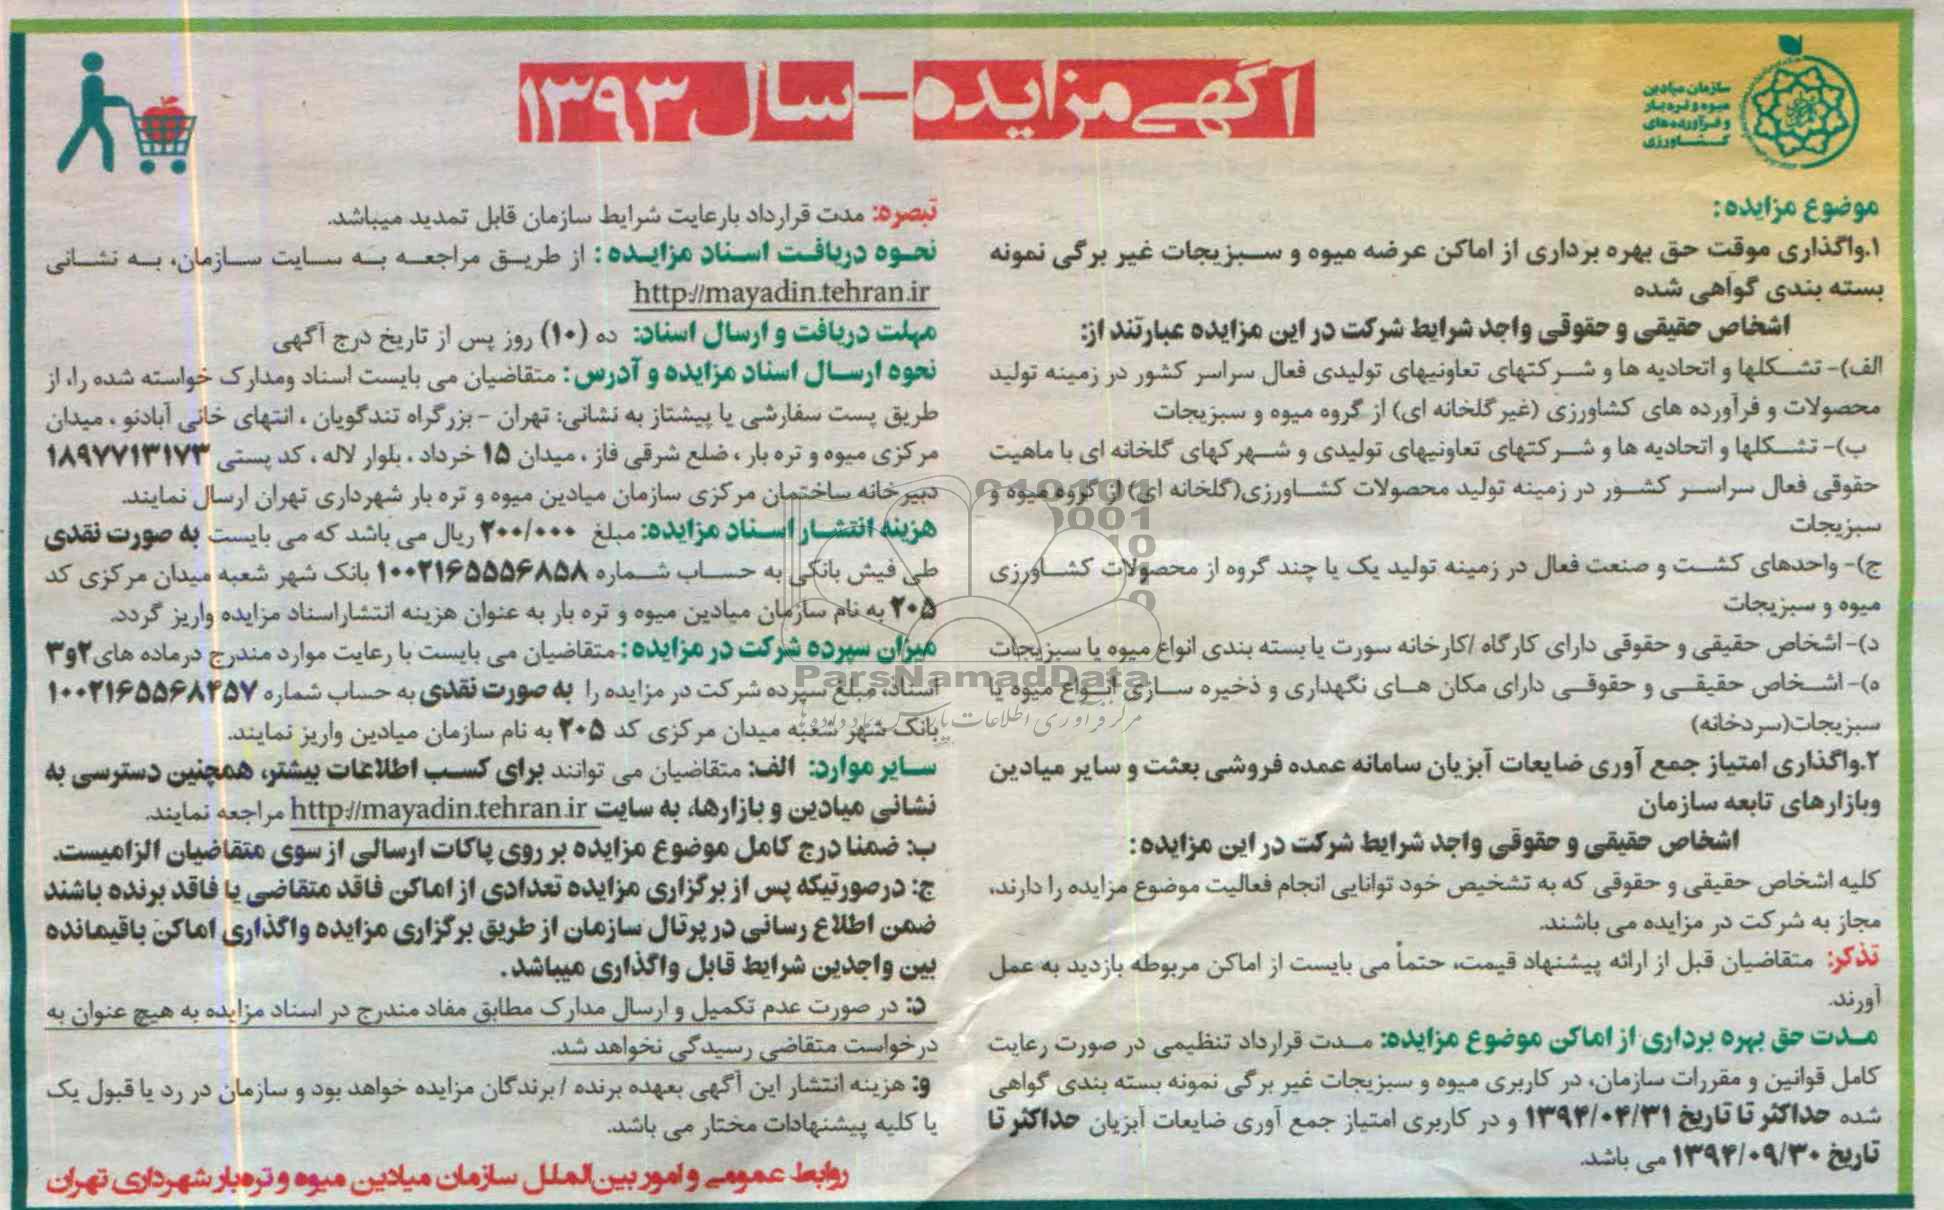 سازمان میادین
میوه و تره بار
و فرآورده‌های
کشاورزی
آگهی مزایده - سال ۱۳۹۳
موضوع مزایده:
۱.واگذاری موقت حق بهره برداری از اماکن عرضه میوه و سبزیجات غیر برگی نمونه
بسته بندی گواهی شده
اشخاص حقیقی و حقوقی واجد شرایط شرکت در این مزایده عبارتند از:
الف)- تشکلها و اتحادیه ها و شرکتهای تعاونیهای تولیدی فعال سراسر کشور در زمینه تولید
محصولات و فرآورده های کشاورزی (غیر گلخانه ای) از گروه میوه و سبزیجات
ب)- تشکلها و اتحادیه ها و شرکتهای تعاونیهای تولیدی و شهرکهای گلخانه ای با ماهیت
حقوقی فعال سراسر کشور در زمینه تولید محصولات کشاورزی(گلخانه ای) از گروه میوه و
سبزیجات
ج)- واحدهای کشت و صنعت فعال در زمینه تولید یک یا چند گروه از محصولات کشاورزی
میوه و سبزیجات
د)- اشخاص حقیقی و حقوقی دارای کارگاه /کارخانه سورت یا بسته بندی انواع میوه یا سبزیجات
ه)- اشخاص حقیقی و حقوقی دارای مکان های نگهداری و ذخیره سازی انواع میوه یا
سبزیجات(سردخانه)
۲.واگذاری امتیاز جمع آوری ضایعات آبزیان سامانه عمده فروشی بعثت و سایر میادین
وبازارهای تابعه سازمان
اشخاص حقیقی و حقوقی واجد شرایط شرکت در این مزایده:
کلیه اشخاص حقیقی و حقوقی که به تشخیص خود توانایی انجام فعالیت موضوع مزایده را دارند،
مجاز به شرکت در مزایده می باشند.
تذکر: متقاضیان قبل از ارائه پیشنهاد قیمت، حتماً می بایست از اماکن مربوطه بازدید به عمل
آورند.
مدت حق بهره برداری از اماکن موضوع مزایده: مدت قرارداد تنظیمی در صورت رعایت
کامل قوانین و مقررات سازمان، در کاربری میوه و سبزیجات غیر برگی نمونه بسته بندی گواهی
شده حداکثر تا تاریخ ۱۳۹۴/۰۴/۳۱ و در کاربری امتیاز جمع آوری ضایعات آبزیان حداکثر تا
تاریخ ۱۳۹۴/۰۹/۳۰ می باشد.
تبصره: مدت قرارداد بارعایت شرایط سازمان قابل تمدید میباشد.
نحوه دریافت اسناد مزایده : از طریق مراجعه به سایت سازمان، به نشانی
http://mayadin.tehran.ir
مهلت دریافت و ارسال اسناد: ده (۱۰) روز پس از تاریخ درج آگهی
نحوه ارسال اسناد مزایده و آدرس : متقاضیان می بایست اسناد ومدارک خواسته شده را، از
طریق پست سفارشی یا پیشتاز به نشانی: تهران - بزرگراه تندگویان ، انتهای خانی آبادنو ، میدان
مرکزی میوه و تره بار ، ضلع شرقی فاز ، میدان ۱۵ خرداد ، بلوار لاله ، کد پستی ۱۸۹۷۷۱۳۱۷۳
دبیرخانه ساختمان مرکزی سازمان میادین میوه و تره بار شهرداری تهران ارسال نمایند.
هزینه انتشار اسناد مزایده: مبلغ ۲۰۰/۰۰۰ ریال می باشد که می بایست به صورت نقدی
طی فیش بانکی به حساب شماره ۱۰۰۲۱۶۵۵۵۶۸۵۸ بانک شهر شعبه میدان مرکزی کد
۲۰۵ به نام سازمان میادین میوه و تره بار به عنوان هزینه انتشاراسناد مزایده واریز گردد.
میزان سپرده شرکت در مزایده : متقاضیان می بایست با رعایت موارد مندرج درماده های ۲و۳
اسناد، مبلغ سپرده شرکت در مزایده را به صورت نقدی به حساب شماره ۱۰۰۲۱۶۵۵۶۸۴۵۷
بانک شهر شعبه میدان مرکزی کد ۲۰۵ به نام سازمان میادین واریز نمایند.
سایر موارد: الف: متقاضیان می توانند برای کسب اطلاعات بیشتر، همچنین دسترسی به
نشانی میادین و بازارها، به سایت http://mayadin.tehran.ir مراجعه نمایند.
ب: ضمنا درج کامل موضوع مزایده بر روی پاکات ارسالی از سوی متقاضیان الزامیست.
ج: درصورتیکه پس از برگزاری مزایده تعدادی از اماکن فاقد متقاضی یا فاقد برنده باشند
ضمن اطلاع رسانی در پرتال سازمان از طریق برگزاری مزایده واگذاری اماکن باقیمانده
بین واجدین شرایط قابل واگذاری میباشد .
د: در صورت عدم تکمیل و ارسال مدارک مطابق مفاد مندرج در اسناد مزایده به هیچ عنوان به
درخواست متقاضی رسیدگی نخواهد شد.
و: هزینه انتشار این آگهی بعهده برنده / برندگان مزایده خواهد بود و سازمان در رد یا قبول یک
یا کلیه پیشنهادات مختار می باشد.
روابط عمومی و امور بین‌الملل سازمان میادین میوه و تره‌بار شهرداری تهران
ParsNamadData